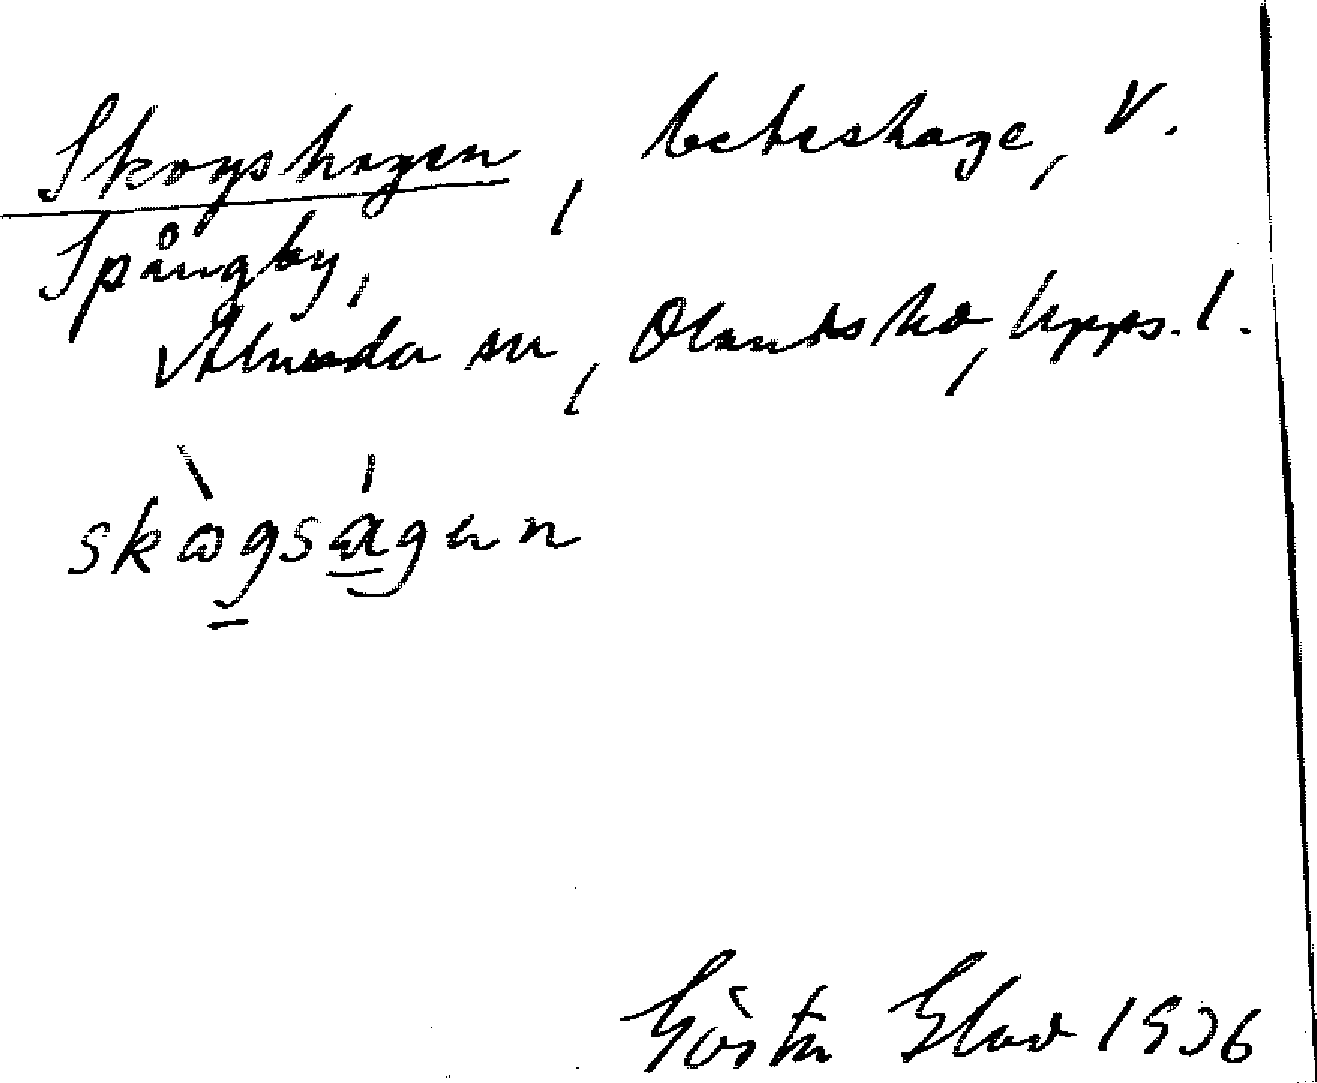 Skogshagen, beteshage, V.
Spångby,
Almunda sn, Olands hd, Upps. l.
skògságan
Gösta Glad 1936